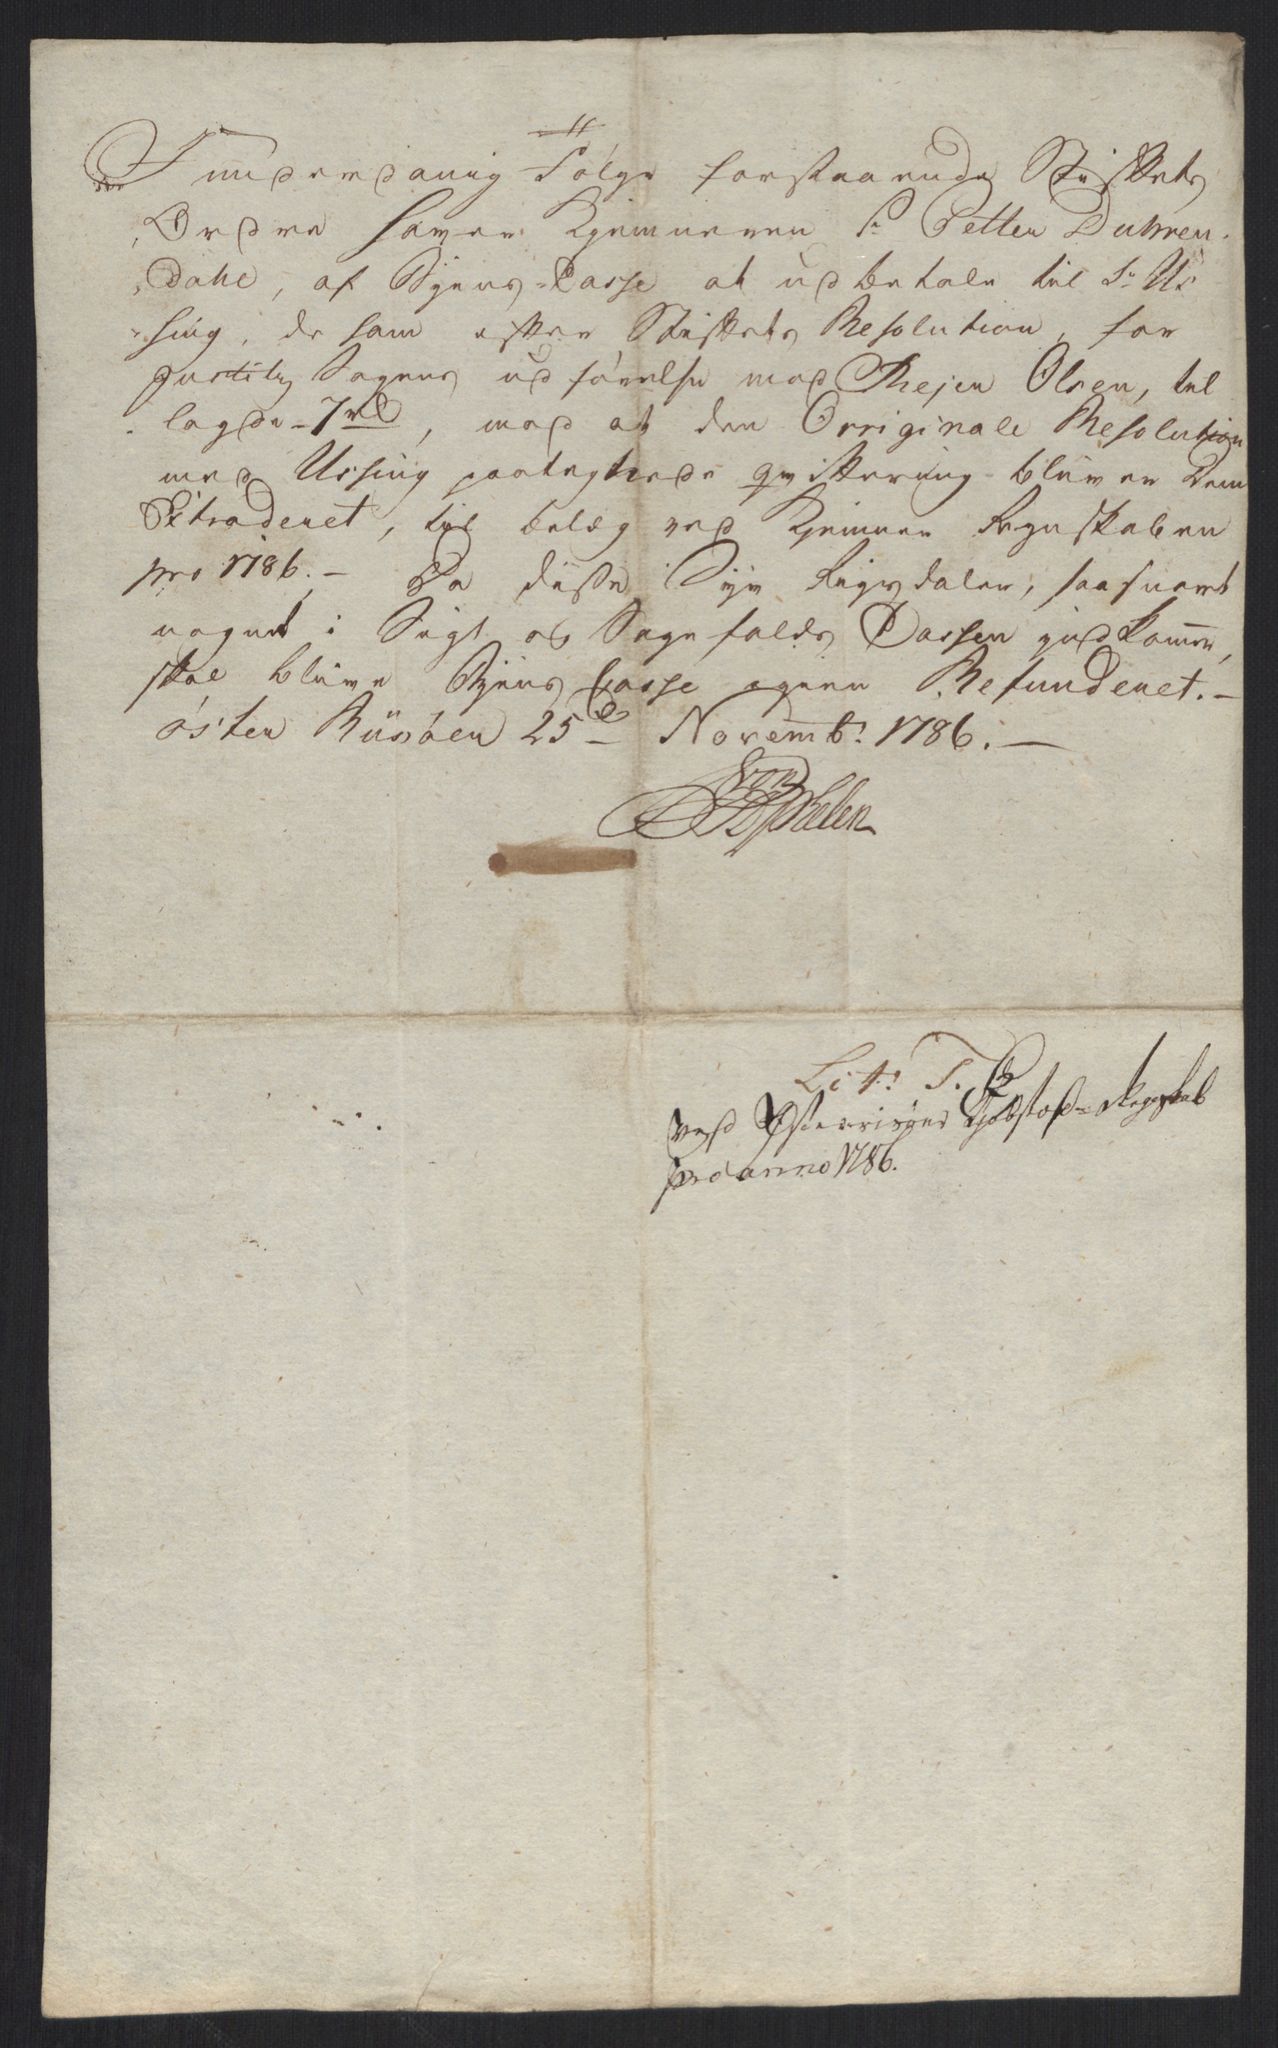 I underdanig Følge forstaaende Stiftets
Ordre haver Kjemneren Sr Petter Duhren-
dahl, af Byens Casse at udbetale til Sr Us
sing, de ham efter Stiftets Resolution, for
Justitz Sagens udførelse mod Rejer Olsen, til
lagde 7 rd, mod at den Orriginale Resolution
med Ussing paategnede qvittering bliver Dem
Extraderet, til belæg ved Kjemner Regnskaben
pro 1786. – Da disse Syv Rigsdaler, saasnart
noget i Sigt og Sagefalds Cassen indkomer,
skal blive Byens Casse igien Refunderet. –
Øster Riisøer 25de Novemb: 1786. –
Lit: T. 2
ved Østerriisøers Kjøbstæds Regnskab
pro anno 1786.